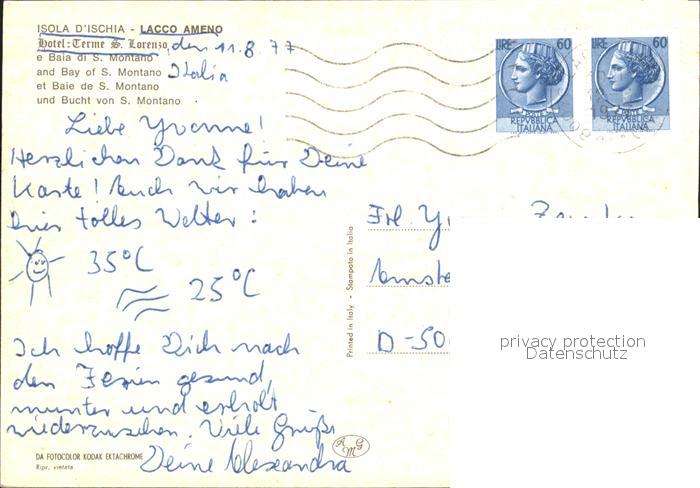 ISOLA D'ISCHIA - LACCO AMENO
Hotel: Terme S. Lorenzo, den 11.8.77
e Baia di S. Montano
and Bay of S. Montano Italia
et Baie de S. Montano
und Bucht von S. Montano
LIRE 60
POSTE
REPVBBLICA
ITALIANA
LIRE 60
POSTE
REPVBBLICA
ITALIANA
Liebe Yvonne!
Herzlichen Dank für Deine
Karte! Auch wir haben
hier tolles Wetter:
35°C
25°C
Ich hoffe Dich nach
den Ferien gesund,
munter und erholt
wiederzusehen. Viele Grüße
Deine Alexandra
DA FOTOCOLOR KODAK EKTACHROME
Ripr. vietata
AGM
Printed in Italy - Stampato in Italia
Frl. Y
Amste
D-50
privacy protection
Datenschutz